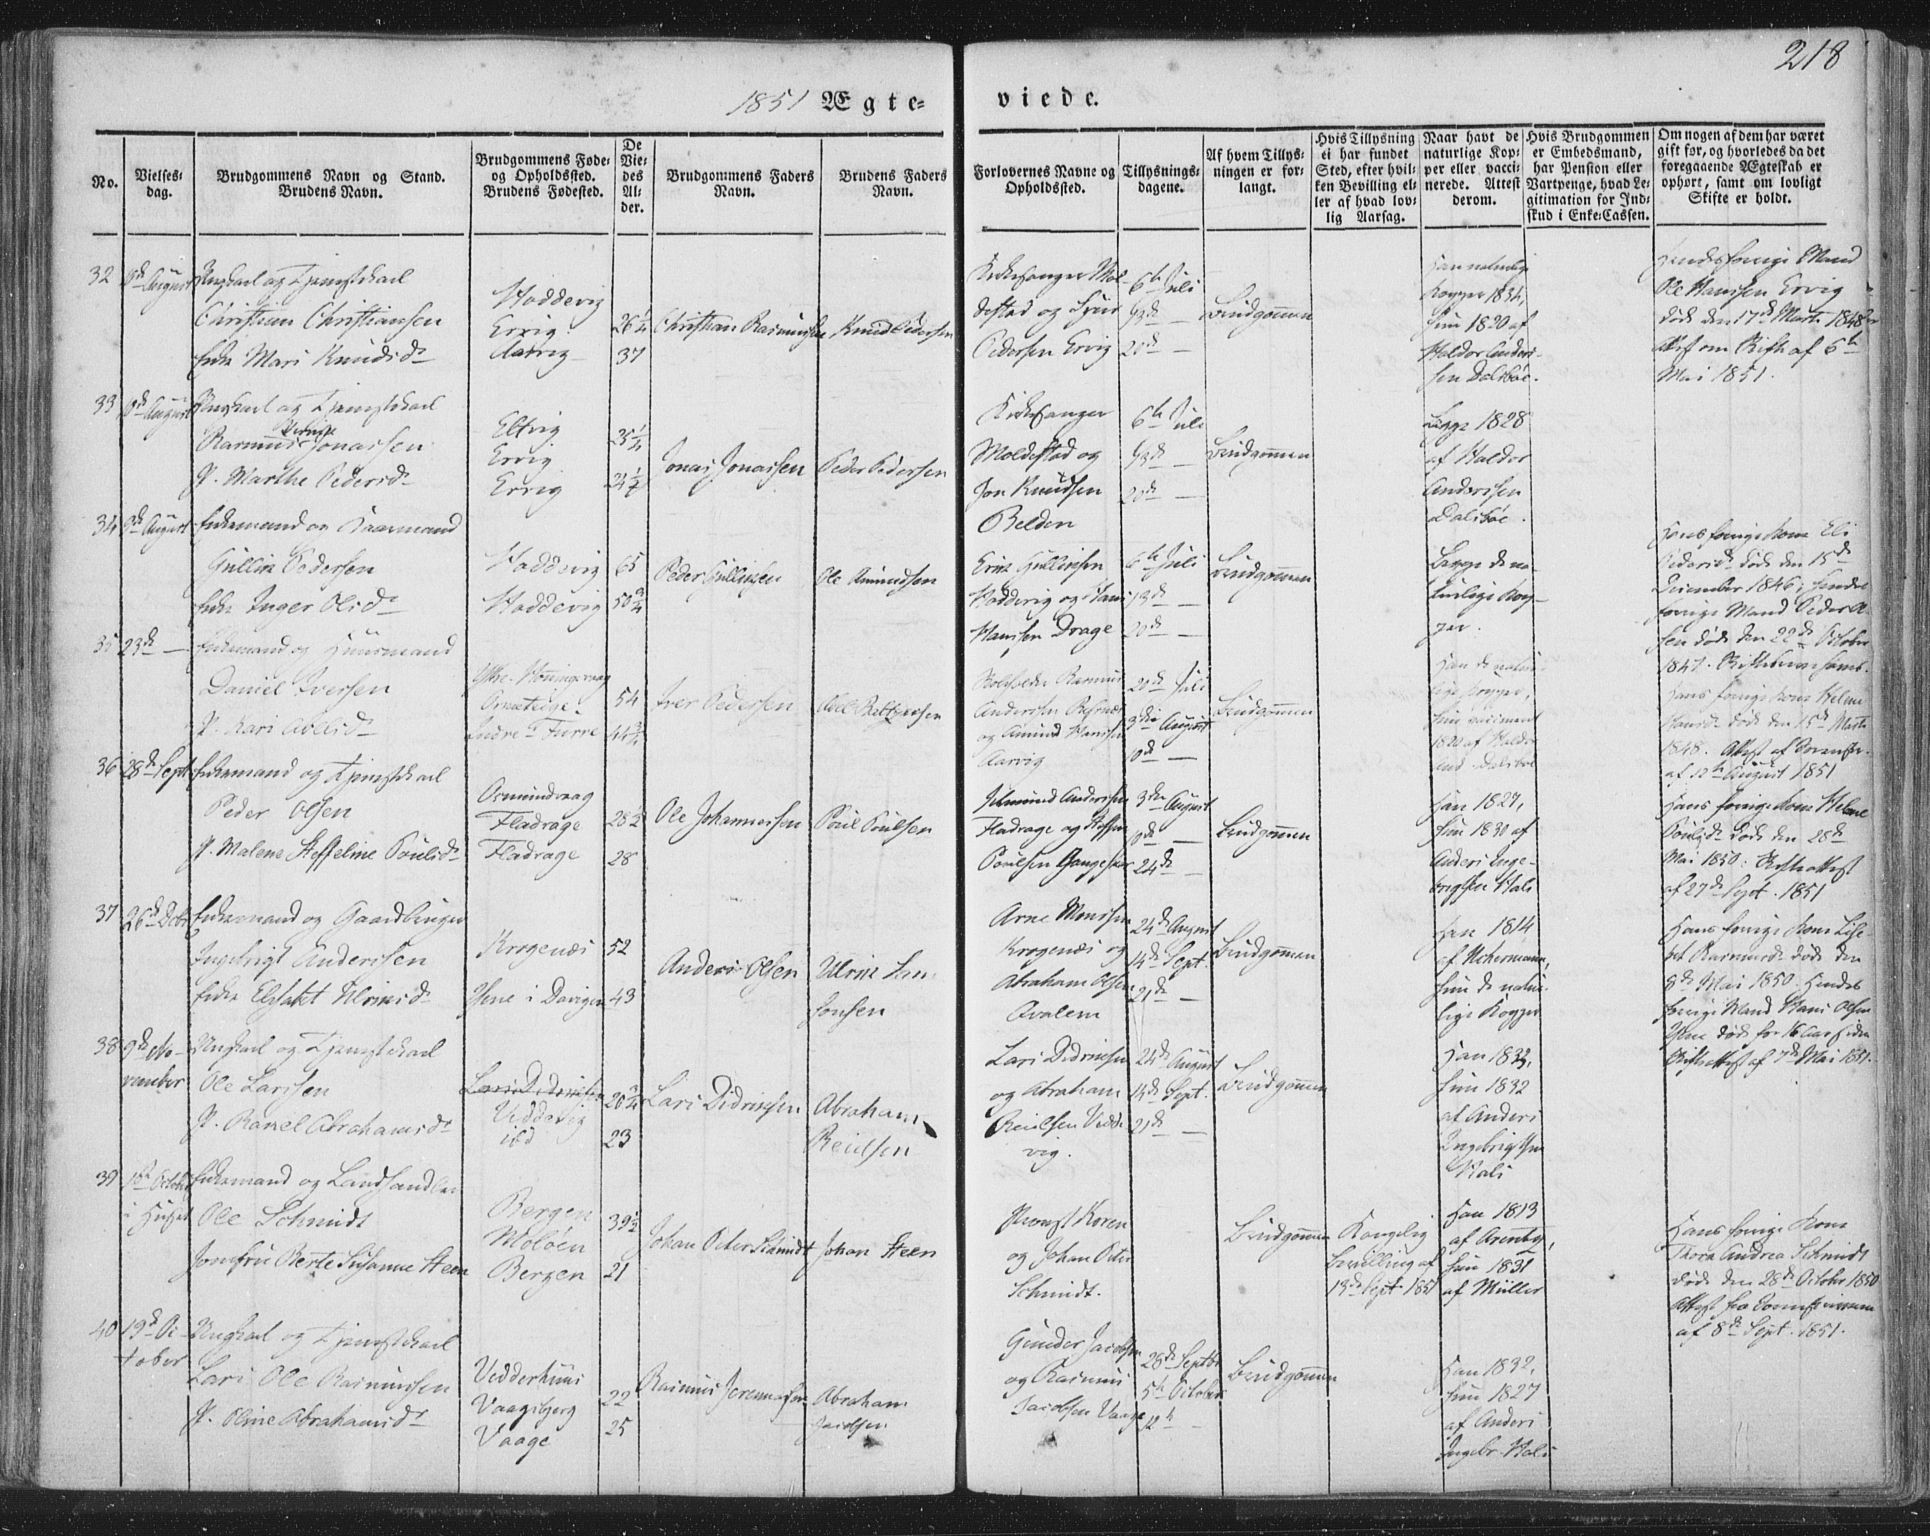 218
1851 Ægte-
viede.
No.
Vielses-
dag.
Brudgommens Navn og Stand.
Brudens Navn.
Brudgommens Føde-
og Opholdssted.
Brudens Fødested.
De
Vie-
des
Al-
der.
Brudgommens Faders
Navn.
Brudens Faders
Navn.
Forlovernes Navne og
Opholdssted.
Tillysnings-
dagene.
Af hvem Tillys-
ningen er for-
langt.
Hvis Tillysning
ei har fundet
Sted, efter hvil-
ken Bevilling el-
ler af hvad lov-
lig Aarsag.
Naar havt de
naturlige Kop-
per eller vacci-
nerede. Attest
derom.
Hvis Brudgommen
er Embedsmand,
har Pension eller
Vartpenge, hvad Le-
gitimation for Ind-
skud i Enke-Cassen.
Om nogen af dem har været
gift før, og hvorledes da det
foregaaende Ægteskab er
ophørt, samt om lovligt
Skifte er holdt.
32
August
Ungkarl og Tjenestekarl
Christian Christiansen
Enke Mari Knudsdr
Hoddevig
Ervig
Aarvig
26 1/4
37
Christian Rasmussen
Knud Pedersen
Kirkesanger Mol-
destad og Sjur
Pedersen Ervig
6te Juli
13de —
20de —
Brudgommen
Han naturlige
Kopper 1834,
hun 1820 af
Haldor Anders-
sen Dalsbøe.
Hendes forrige Mand
Ole Hanssen Ervig
døde den 17de Marts 1848
Attest om Skifte af 6te
Mai 1851.
33
August
Ungkarl og Tjenestekarl
Rasmus Jonassen
P. Marthe Pedersdr
Eltvig
Ervig
Ervig
25 1/4
24 1/2
Jonas Jonassen
Peder Pedersen
Kirkesanger
Moldestad og
Jon Knudsen
Belden
6te Juli
13de —
20de —
Brudgommen
Begge 1828
af Haldor
Anderssen
Dalsbøe.
34
August
Enkemand og Kaarmand
Gullik Pedersen
Enke Inger Olsdr
Hoddevig
Hoddevig
65
50 3/4
Peder Gulliksen
Ole Amundsen
Erik Gulliksen
Hoddevig og Hans
Hanssen Drage
6te Juli
13de —
20de —
Brudgommen
Begge de na-
turlige Kop-
per.
Hans forrige Kone Eli
Pedersdr døde den 15de
December 1846; hendes
forrige Mand Peder Ol-
sen døde den 22de October
1847.
35
23de —
Enkemand og Huusmand
Daniel Iversen
P. Kari Abelsdr
54
44 3/4
Indre Furre
Iver Pedersen
Rasmus
Anderssen
og Amund Hanssen
Aarvig
20de Juli
3die August
10de —
Brudgommen
Han de natur-
lige Kopper,
hun vaccineret
1820 af Haldor
And. Dalsbøe
Hans forrige Kone Helene
Hansdr døde den 15de Marts
1848. Attest af
af 12te August 1851
36
28de Sept
Enkemand og Tjenestekarl
Peder Olsen
P. Malene Steffeline Poulsdr
Osmundvaag
Fladrage
Fladrage
28 1/2
28
Ole Johannessen
Poul Poulsen
Fladrage og Steffen
Poulsen
3die August
10de —
24de
Brudgommen
Han 1827,
hun 1830 af
Anders Inge-
brigtsen Hals
Hans forrige Kone Helene
Poulsdr døde den 28de
Mai 1850. Skifteattest
af 27de Sept. 1851
37
26de Octbr
Enkemand og Gaardbruger
Ingebrigt Anderssen
Enke Elisabet Ulriksdr
Krogenæs
52
43
Anders Olsen
Ulrik Jen-
sen
Arne Monssen
Krogenæs og
Abraham Olsen
Qvalem
24de August
14de Sept.
21de —
Brudgommen
Han 1814
af Ackermann,
hun de natur-
lige Kopper
Hans forrige Kone Lise-
bet Rasmusdr døde den
8de Mai 1850. Hendes
forrige Mand Hans Olsen
døde for 16 Aar siden
Skifteattest af 7de Mai 1851.
38
9de No-
vember
Ungkarl og Tjenestekarl
Ole Larssen
P. Rakel Abrahamsdr
Lars Didriksen
Veddevig
ibd
20 3/4
23
Lars Didriksen
Abraham
Reidsen
Lars Didriksen
og Abraham
Reidsen Vedde-
vig.
24de August
14de Sept.
21de —
Brudgommen
Han 1832,
hun 1832
af Anders
Ingebrigtsen
Hals
39
October
i Huset
Enkemand og Landhandler
Ole Schmidt
Jomfru Berte Susanne Steen
Bergen
Moldøen
Bergen
39 1/2
21
Johan Peter Schmidt
Johan Steen
Provst Koren
og Johan Peter
Schmidt.
Brudgommen
Kongelig
Bevilling af
13de Sept. 1851
Han 1813
af Arentz,
hun 1831
af Müller
Hans forrige Kone
Thora Andrea Schmidt
døde den 28de October 1850
Attest fra
af 8de Sept. 1851.
40
19de Oc-
tober
Ungkarl og Tjenestekarl
Lars Ole Rasmussen
P. Oline Abrahamsdr
Vedderhuus
Vaagsberg
Vaage
22
25
Rasmus Jeremiassen
Abraham
Jacobsen
Gunder Jacobsen
og Rasmus
Jacobsen Vaage
28de Septbr
5te October
12te —
Brudgommen
Han 1832,
hun 1827
af Anders
Ingebr. Hals